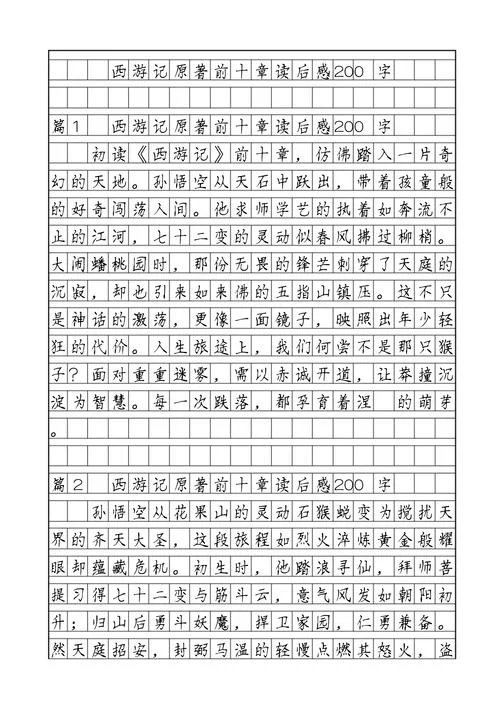 西游记原著前十章读后感200 字
篇1 西游记原著前十章读后感200 字
初读《西游记》前十章，仿佛踏入一片奇
幻的天地。孙悟空从天石中跃出，带着孩童般
的好奇闯荡人间。他求师学艺的执着如奔流不
止的江河，七十二变的灵动似春风拂过柳梢。
大闹蟠桃园时，那份无畏的锋芒刺穿了天庭的
沉寂，却也引来如来佛的五指山镇压。这不只
是神话的激荡，更像一面镜子，映照出年少轻
狂的代价。人生旅途上，我们何尝不是那只猴
子？面对重重迷雾，需以赤诚开道，让莽撞沉
淀为智慧。每一次跌落，都孕育着涅 的萌芽
。
篇2 西游记原著前十章读后感200 字
孙悟空从花果山的灵动石猴蜕变为搅扰天
界的齐天大圣，这段旅程如烈火淬炼黄金般耀
眼却蕴藏危机。初生时，他踏浪寻仙，拜师菩
提习得七十二变与筋斗云，意气风发如朝阳初
升；归山后勇斗妖魔，捍卫家园，仁勇兼备。
然天庭招安，封弼马温的轻慢点燃其怒火，盗